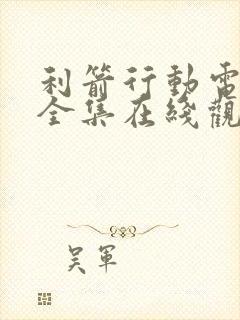 利箭行動電
全集在綫觀
吴軍